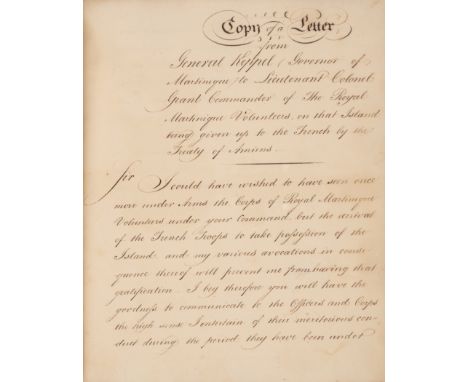 Copy of a Letter
from
General Keppel (Governor of
Martinique) to Lieutenant Colonel
Grant Commander of The Royal
Martinique Volunteers, on that Island
being given up to the French by the
Treaty of Amiens.
Sir I could have wished to have seen once
more under Arms the Corps of Royal Martinique
Volunteers under your Command, but the arrival
of the French Troops to take possession of the
Island, and my various avocations in conse-
quence thereof will prevent me from having that
gratification. I beg therefore you will have the
goodness to communicate to the Officers and Corps
the high sense I entertain of their meritorious con-
duct during the period they have been under